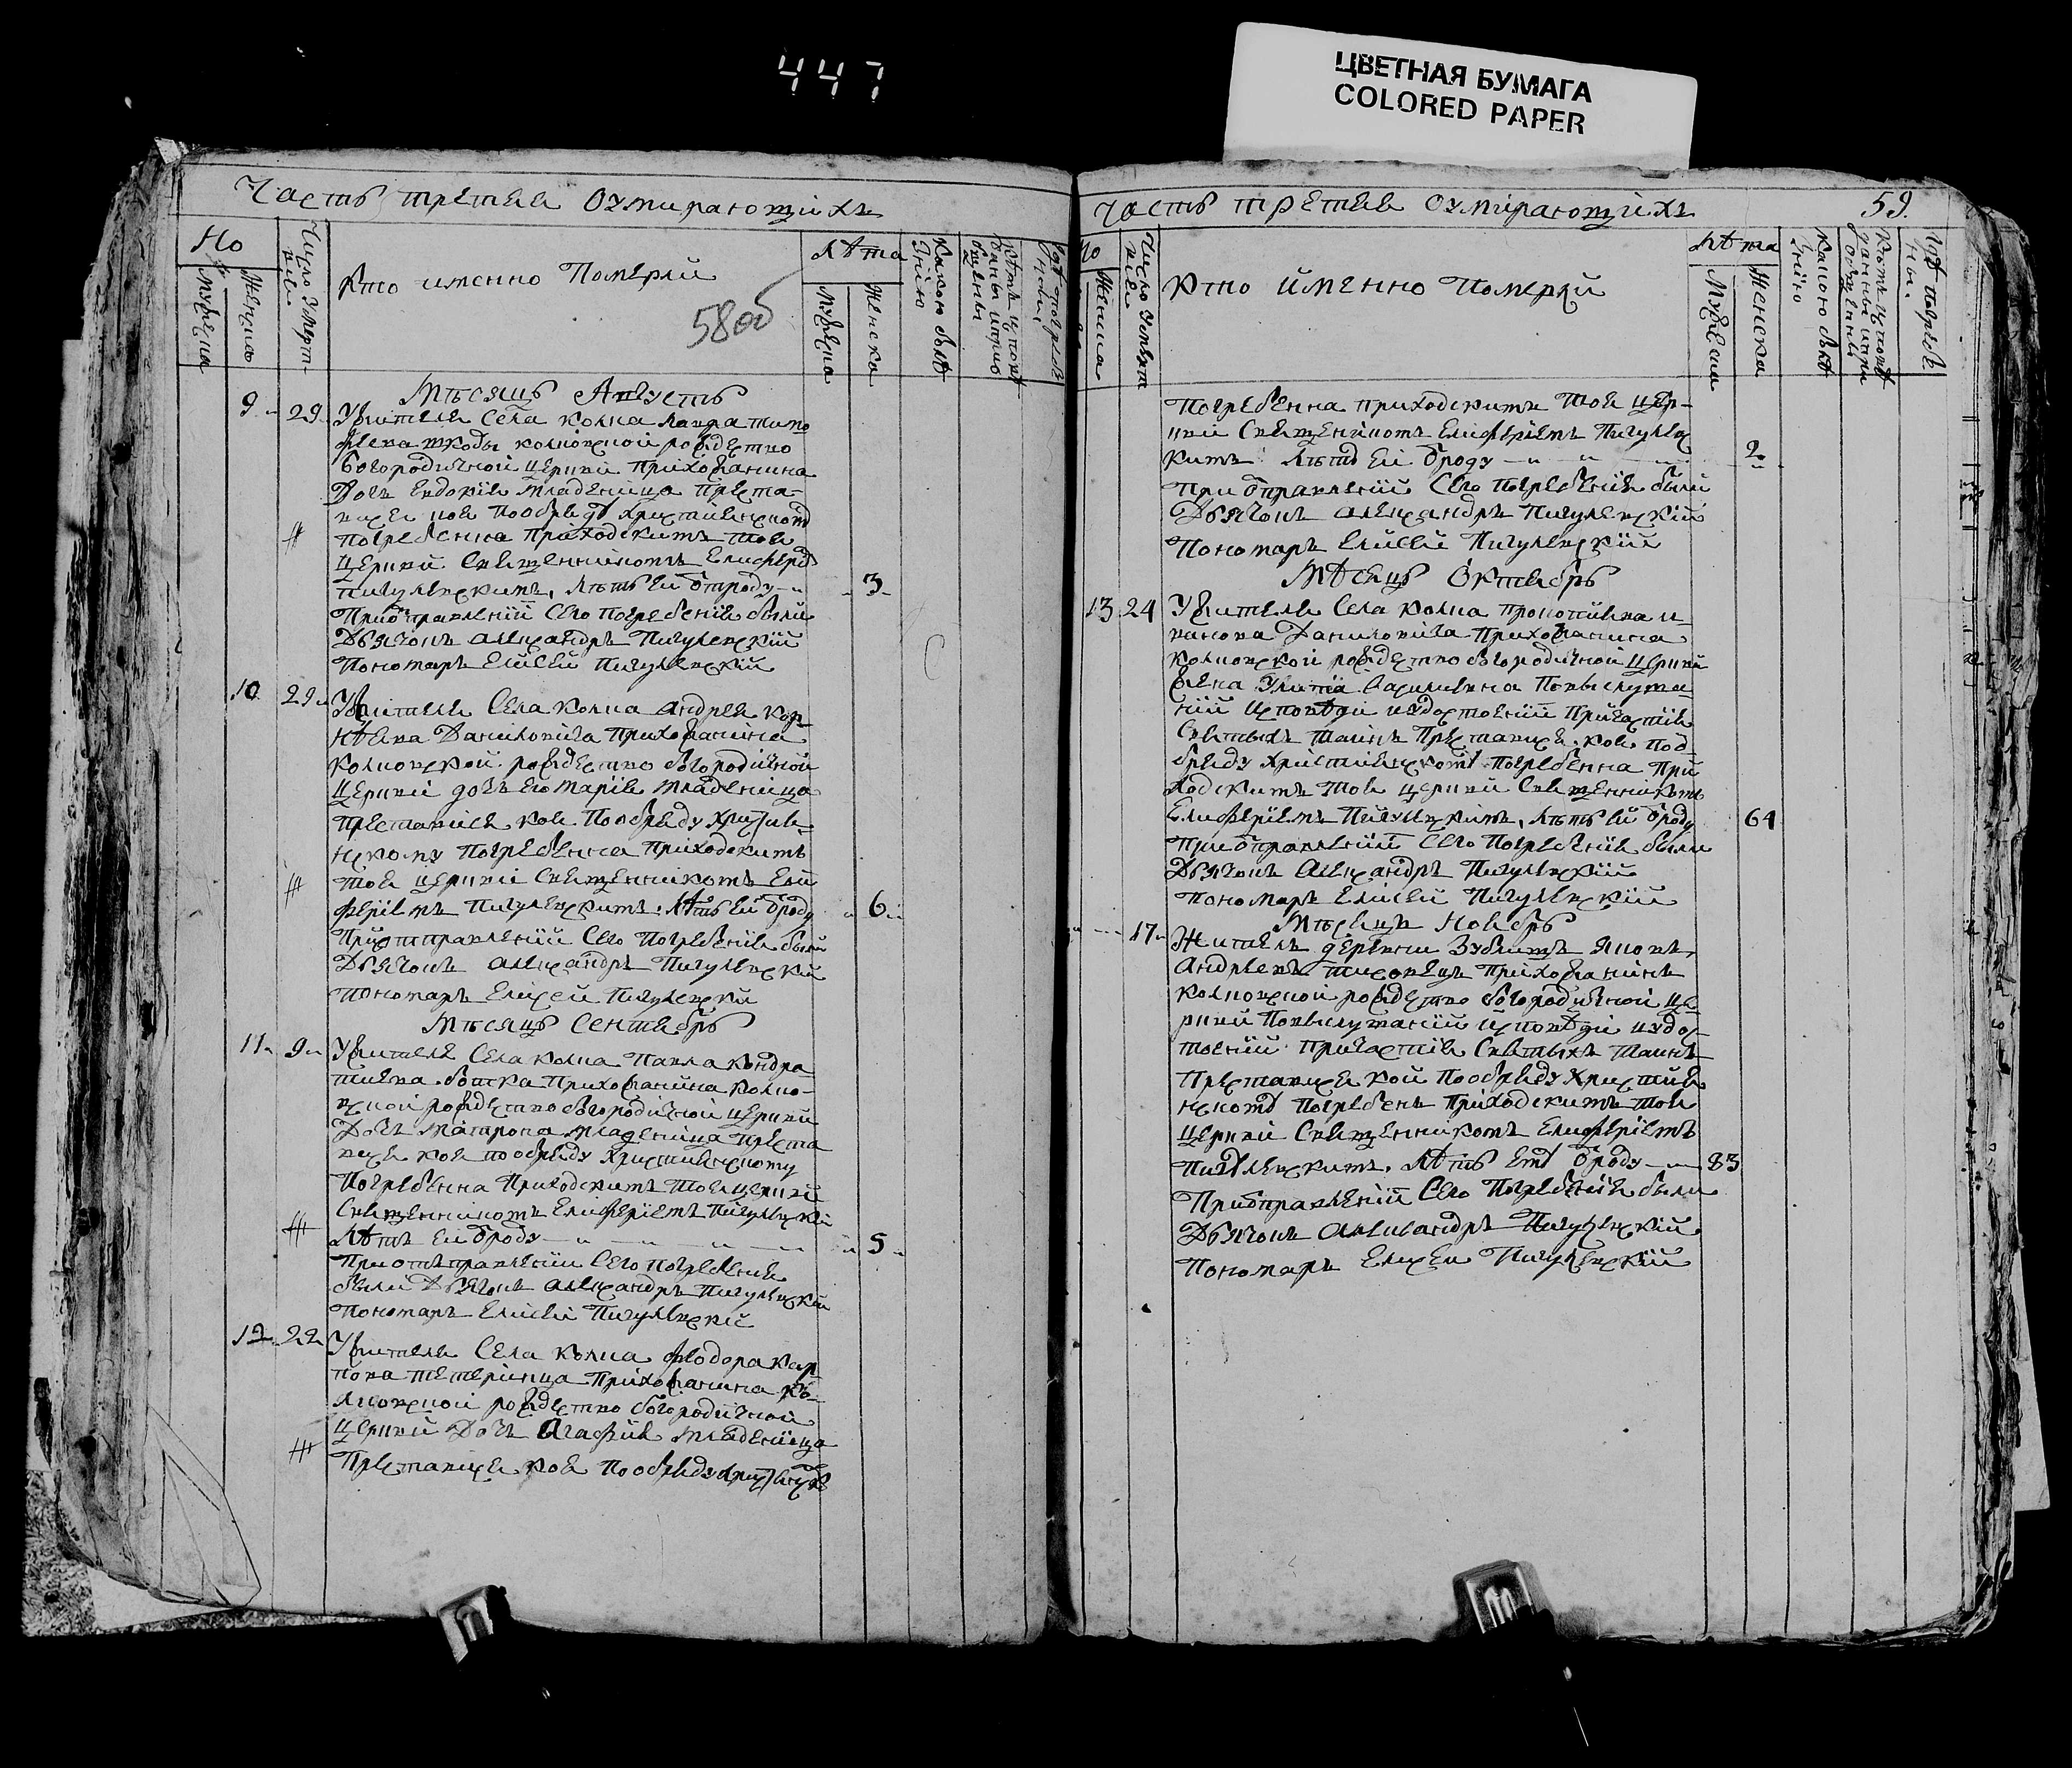 447
ЦВЕТНАЯ БУМАГА
COLORED PAPER
Часть третяя Оумирающихъ
Но
Мужеска
Женска
Число Умерт
вія
Кто именно Померли
58об
Лѣта
Мужеска
Женска
Какою болѣ
знію
Мѣсяцъ Августъ
9 29 Жителя Села колпа
колповской рождество
Богородичной церкви Прихожанина
Дочь Евдокія младеница Преста-
вися коя Пообряду Християнскому
Погребенна Приходскимъ тоя
Церкви Священникомъ Елиферіе
Пигулевскимъ, лѣтъ ей отроду 3
При отправленіи Сего Погребенія были
Дьячокъ Александръ Пигулевскій
Пономарь Елисей Пигулевскій
10 29 Жителя Села колпа Андрея кор
нѣева Даниловича Прихожанина
колповской рождество богородичной
Церкви дочь его Марія Младеница
Преставися коя Пообряду Христия
нскому Погребенна Приходскимъ
тоя церкви Священникомъ Ели
феріемъ Пигулевскимъ лѣтъ ей отроду 6
При отправленіи Сего Погребенія были
Дьячокъ Александръ Пигулевскій
Пономарь Елисей Пигулевски
Мѣсяцъ Сентябрь
11 9 Жителя Села колпа Павла кондра
тиева Прихожанина колпо-
вской рождество богородичной церкви
Дочь Матрона младеница Преста
вися коя пообряду Християнскому
Погребенна Приходскимъ тоя церкви
Священникомъ Елиферіемъ Пигулевски
лѣтъ ей отроду 5
При отправленіи Сего погребения
были Дьячокъ Александръ Пигулевский
Пономарь Елисей Пигулевскій
12 22 Жителя Села колпа Федора кар
пова Прихожанина ко
лповской рождество богородичной
церкви Дочь Агафия младеница
Преставися коя Пообряду
Часть третяя Оумирающихъ
59.
Но
Женска
Число Умерт
вія
Кто именно Померли
Лѣта
Мужеска
Женска
Какою болѣ
знію
Погребенна приходскимъ Тоя цер-
кви Священникомъ Елиферіемъ Пигулевс
кимъ лѣтъ ей отроду 2
При отправленіи Сего Погребенія были
Дьячокъ Александръ Пигулевскій
Пономарь Елисей Пигулевскій
Мѣсяцъ Октябрь
13 24 Жителя Села колпа Прокопиева и
ванова Даниловича Прихожанина
колповской рождество богородичной Церкви
жена Василиевна Повыслуша
ніи исповѣди иудостоеніи Причастія
Святыхъ таинъ Преставися коя Поо
бряду Християнскому Погребенна При
ходскимъ тоя церкви Священникомъ
Елиферіемъ Пигулевскимъ, лѣтъ ей отроду 64
При отправленіи Сего Погребенія были
Дьячокъ Александръ Пигулевскій
Пономарь Елисей Пигулевскій
Мѣсяцъ Ноябрь
17 Житель деревни Яковъ
Андреевъ Прихожанинъ
колповской рождество богородичной Це
ркви Повыслушаніи исповѣди иудос
тоеніи Причастія Святыхъ таинъ
Преставися кой Пообряду Христия
нскому Погребенъ Приходскимъ тоя
церкви Священникомъ Елиферіемъ
Пигулевскимъ. лѣтъ ему отроду 83
При отправленіи Сего Погребенія были
Дьячокъ Александръ Пигулевскій
Пономарь Елисей Пигулевскій